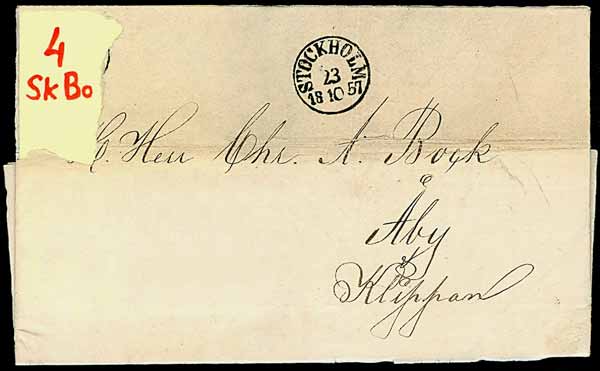 4
Sk Bo
STOCKHOLM
23
18 10 57
H. Herr Chr. A. Bock
Åby
Klippan